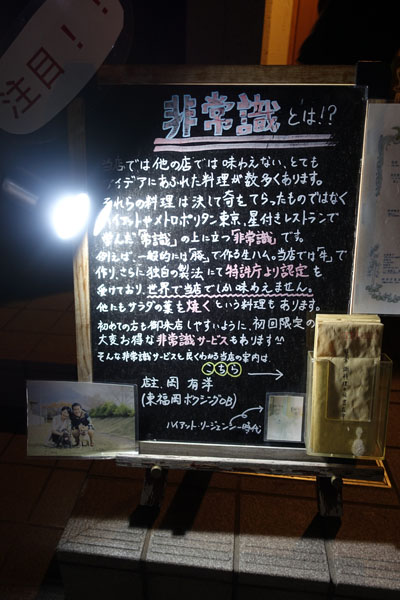 注目!!
非常識とは!?
当店では他の店では味わえない、とても
アイデアにあふれた料理が数多くあります。
それらの料理は決して奇をてらったものではなく
ハイアットやメトロポリタン東京、星付きレストランで
学んだ「常識」の上に立つ「非常識」です。
例えば、一般的には「豚」で作る生ハム。当店では「牛」で
作り、さらに独自の製法にて特許庁より認定を
受けており、世界で当店でしか味わえません。
他にもサラダの葉を焼くという料理もあります。
初めての方も御来店しやすいように、初回限定の
大変お得な非常識サービスもあります^^
そんな非常識サービスも良くわかる当店の案内は、
こちら
店主 岡 有洋
(東福岡ボクシング部OB)
ハイアット・リージェンシー時代